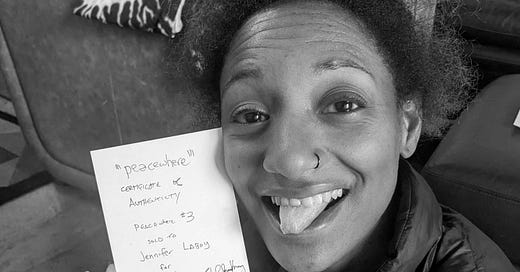 "peacewhere"
CERTIFICATE OF
AUTHENTICITY
PEACEWHERE #3
SOLD TO
Jennifer LABOY
for